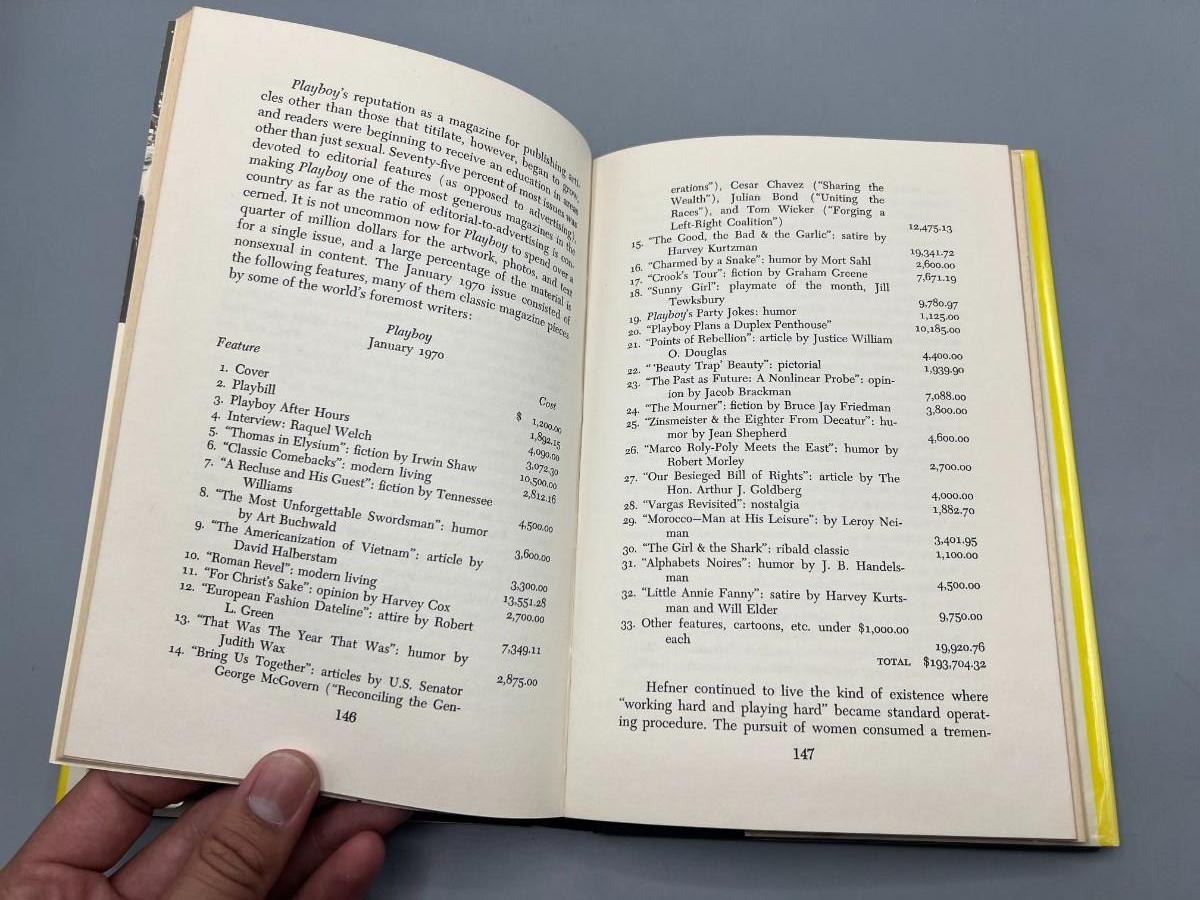 Playboy's reputation as a magazine for publishing arti-
cles other than those that titilate, however, began to grow,
and readers were beginning to receive an education in areas
other than just sexual. Seventy-five percent of most issues was
devoted to editorial features (as opposed to advertising),
making Playboy one of the most generous magazines in the
country as far as the ratio of editorial-to-advertising is con-
cerned. It is not uncommon now for Playboy to spend over a
quarter of million dollars for the artwork, photos, and text
for a single issue, and a large percentage of the material is
nonsexual in content. The January 1970 issue consisted of
the following features, many of them classic magazine pieces
by some of the world's foremost writers:
Playboy
January 1970
Feature Cost
1. Cover $ 1,200.00
2. Playbill 1,892.15
3. Playboy After Hours 4,090.00
4. Interview: Raquel Welch 3,072.30
5. "Thomas in Elysium": fiction by Irwin Shaw 10,500.00
6. "Classic Comebacks": modern living 2,812.16
7. "A Recluse and His Guest": fiction by Tennessee
Williams 4,500.00
8. "The Most Unforgettable Swordsman": humor
by Art Buchwald 3,600.00
9. "The Americanization of Vietnam": article by
David Halberstam 3,300.00
10. "Roman Revel": modern living 13,551.28
11. "For Christ's Sake": opinion by Harvey Cox 2,700.00
12. "European Fashion Dateline": attire by Robert
L. Green 7,349.11
13. "That Was The Year That Was": humor by
Judith Wax 2,875.00
14. "Bring Us Together": articles by U.S. Senator
George McGovern ("Reconciling the Gen-
146
erations"), Cesar Chavez ("Sharing the
Wealth"), Julian Bond ("Uniting the
Races"), and Tom Wicker ("Forging a
Left-Right Coalition") 12,475.13
15. "The Good, the Bad & the Garlic": satire by
Harvey Kurtzman 19,341.72
16. "Charmed by a Snake": humor by Mort Sahl 2,600.00
17. "Crook's Tour": fiction by Graham Greene 7,671.19
18. "Sunny Girl": playmate of the month, Jill
Tewksbury 9,780.97
19. Playboy's Party Jokes: humor 1,125.00
20. "Playboy Plans a Duplex Penthouse" 10,185.00
21. "Points of Rebellion": article by Justice William
O. Douglas 4,400.00
22. "'Beauty Trap' Beauty": pictorial 1,939.90
23. "The Past as Future: A Nonlinear Probe": opin-
ion by Jacob Brackman 7,088.00
24. "The Mourner": fiction by Bruce Jay Friedman 3,800.00
25. "Zinsmeister & the Eighter From Decatur": hu-
mor by Jean Shepherd 4,600.00
26. "Marco Roly-Poly Meets the East": humor by
Robert Morley 2,700.00
27. "Our Besieged Bill of Rights": article by The
Hon. Arthur J. Goldberg 4,000.00
28. "Vargas Revisited": nostalgia 1,882.70
29. "Morocco—Man at His Leisure": by Leroy Nei-
man 3,401.95
30. "The Girl & the Shark": ribald classic 1,100.00
31. "Alphabets Noires": humor by J. B. Handels-
man 4,500.00
32. "Little Annie Fanny": satire by Harvey Kurts-
man and Will Elder 9,750.00
33. Other features, cartoons, etc. under $1,000.00
each 19,920.76
TOTAL $193,704.32
Hefner continued to live the kind of existence where
"working hard and playing hard" became standard operat-
ing procedure. The pursuit of women consumed a tremen-
147